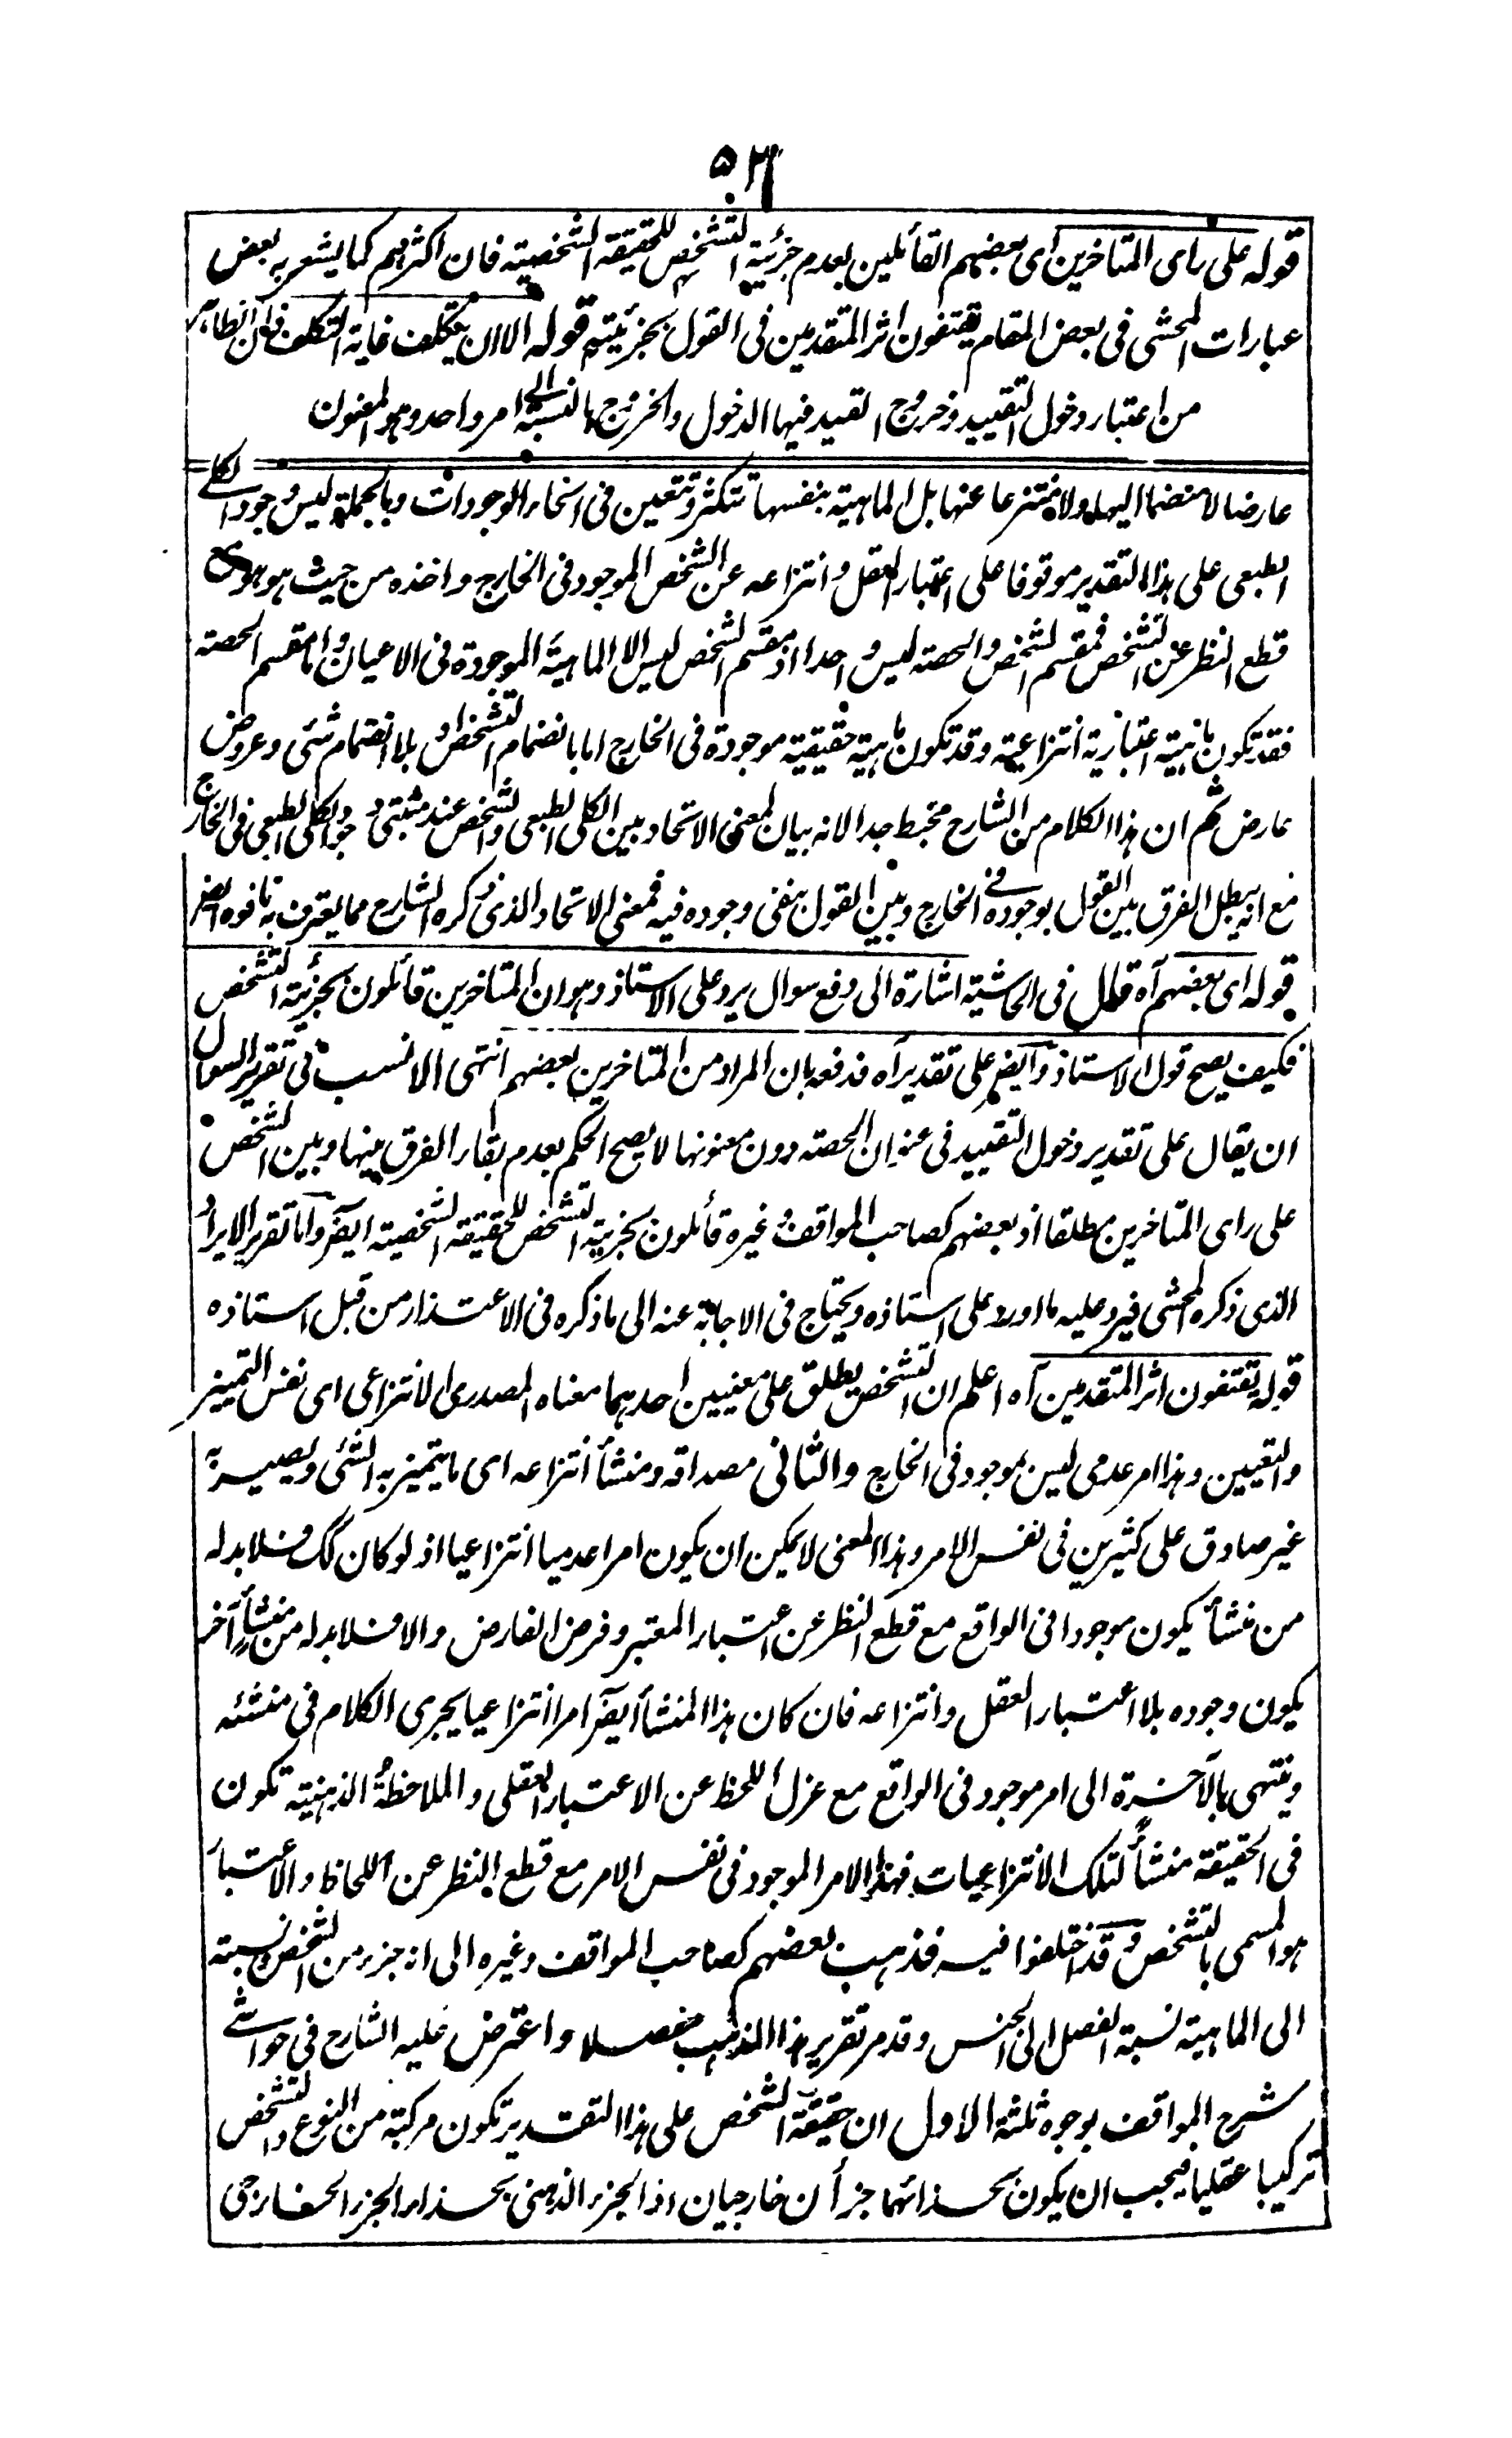 ٥٢
قوله على راى المتاخرين اى بعضهم القائلين بعدم جزئية التشخص للحقيقة الشخصية فان اكثرهم كما يشعر به بعض
عبارات المحشى فى بعض المقام يقتفون اثر المتقدمين فى القول بجزئيته قوله الا ان يتكلف غاية التكلف فان الظاهر
من اعتبار دخول التقييد وخروج القيد فيها الدخول والخروج بالنسبة الى امر واحد وهو المعنون
عارضا لا منضما اليها ولا منتزعا عنها بل الماهية بنفسها تتكثر وتتعين فى انحاء الوجودات وبالجملة ليس وجود الكلى
الطبعى على هذا التقدير موقوفا على اعتبار العقل وانتزاعه عن الشخص الموجود فى الخارج واخذه من حيث هو هو مع
قطع النظر عن التشخص فمقسم الشخص والحصة ليس واحدا اذ مقسم الشخص ليس الا الماهية الموجودة فى الاعيان واما مقسم الحصة
فقد تكون ماهية اعتبارية انتزاعية وقد تكون ماهية حقيقية موجودة فى الخارج اما بانضمام التشخص او بلا انضمام شئى وعروض
عارض ثم ان هذا الكلام من الشارح مختبط جدا لانه بيان لمعنى الاتحاد بين الكلى الطبعى والشخص عند مثبتى وجود الكلى الطبعى فى الخارج
مع انه يبطل الفرق بين القول بوجوده فى الخارج وبين القول بنفى وجوده فيه فمعنى الاتحاد الذى ذكره الشارح مما يعترف به نافوه ايضا
قوله اى بعضهم آه قال فى الحاشية اشارة الى دفع سوال يرد على الاستاذ وهو ان المتاخرين قائلون بجزئية التشخص
فكيف يصح قول الاستاذ وايضا على تقدير آه فدفعه بان المراد من المتاخرين بعضهم انتهى الانسب فى تقرير السوال
ان يقال على تقدير دخول التقييد فى عنوان الحصة دون معنونها لا يصح الحكم بعدم بقاء الفرق بينها وبين الشخص
على راى المتاخرين مطلقا اذ بعضهم كصاحب المواقف وغيره قائلون بجزئية التشخص للحقيقة الشخصية ايضا واما تقرير الايراد
الذى ذكره المحشى فيرد عليه ما اورد على استاذه ويحتاج فى الاجابة عنه الى ما ذكره فى الاعتذار من قبل استاذه
قوله يقتفون اثر المتقدمين آه اعلم ان التشخص يطلق على معنيين احدهما معناه المصدرى الانتزاعى اى نفس التميز
والتعيين وهذا امر عدمى ليس بموجود فى الخارج والثانى مصداقه ومنشأ انتزاعه اى ما يتميز به الشئى ويصير به
غير صادق على كثيرين فى نفس الامر وهذا المعنى لا يمكن ان يكون امرا عدميا انتزاعيا اذ لو كان كك فلا بد له
من منشأ يكون موجودا فى الواقع مع قطع النظر عن اعتبار المعتبر وفرض الفارض والا فلا بد له من منشأ آخر
يكون وجوده بلا اعتبار العقل وانتزاعه فان كان هذا المنشأ ايضا امرا انتزاعيا يجرى الكلام فى منشئه
وينتهى بالآخرة الى امر موجود فى الواقع مع عزل اللحظ عن الاعتبار العقلى والملاحظة الذهنية تكون
فى الحقيقة منشأ لتلك الانتزاعيات فهذا الامر الموجود فى نفس الامر مع قطع النظر عن اللحاظ والاعتبار
هو المسمى بالتشخص وقد اختلفوا فيه فذهب بعضهم كصاحب المواقف وغيره الى انه جزء من الشخص ونسبته
الى الماهية نسبة الفصل الى الجنس وقد مر تقرير هذا المذهب مفصلا واعترض عليه الشارح فى حواشى
شرح المواقف بوجوه ثلثة الاول ان حقيقة الشخص على هذا التقدير تكون مركبة من النوع والتشخص
تركيبا عقليا فيجب ان يكون بحذائهما جزأن خارجيان اذ الجزء الذهنى بحذاء الجزء الخارجى